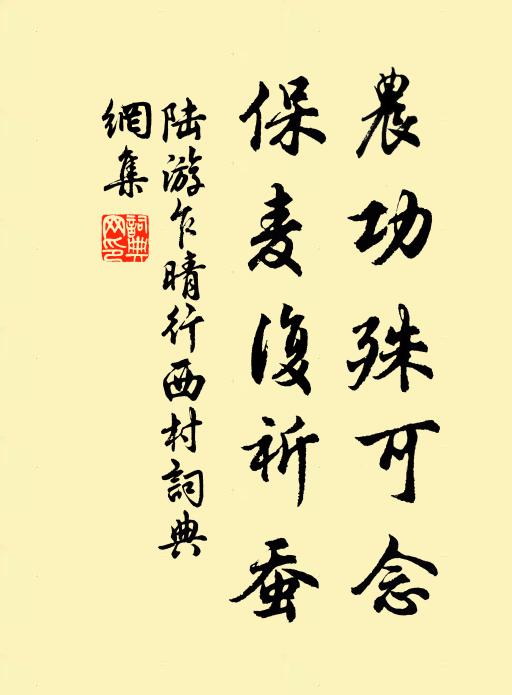 農功殊可念
保麦復祈蚕
陆游乍晴行西村詞典
網集
詞典
网印